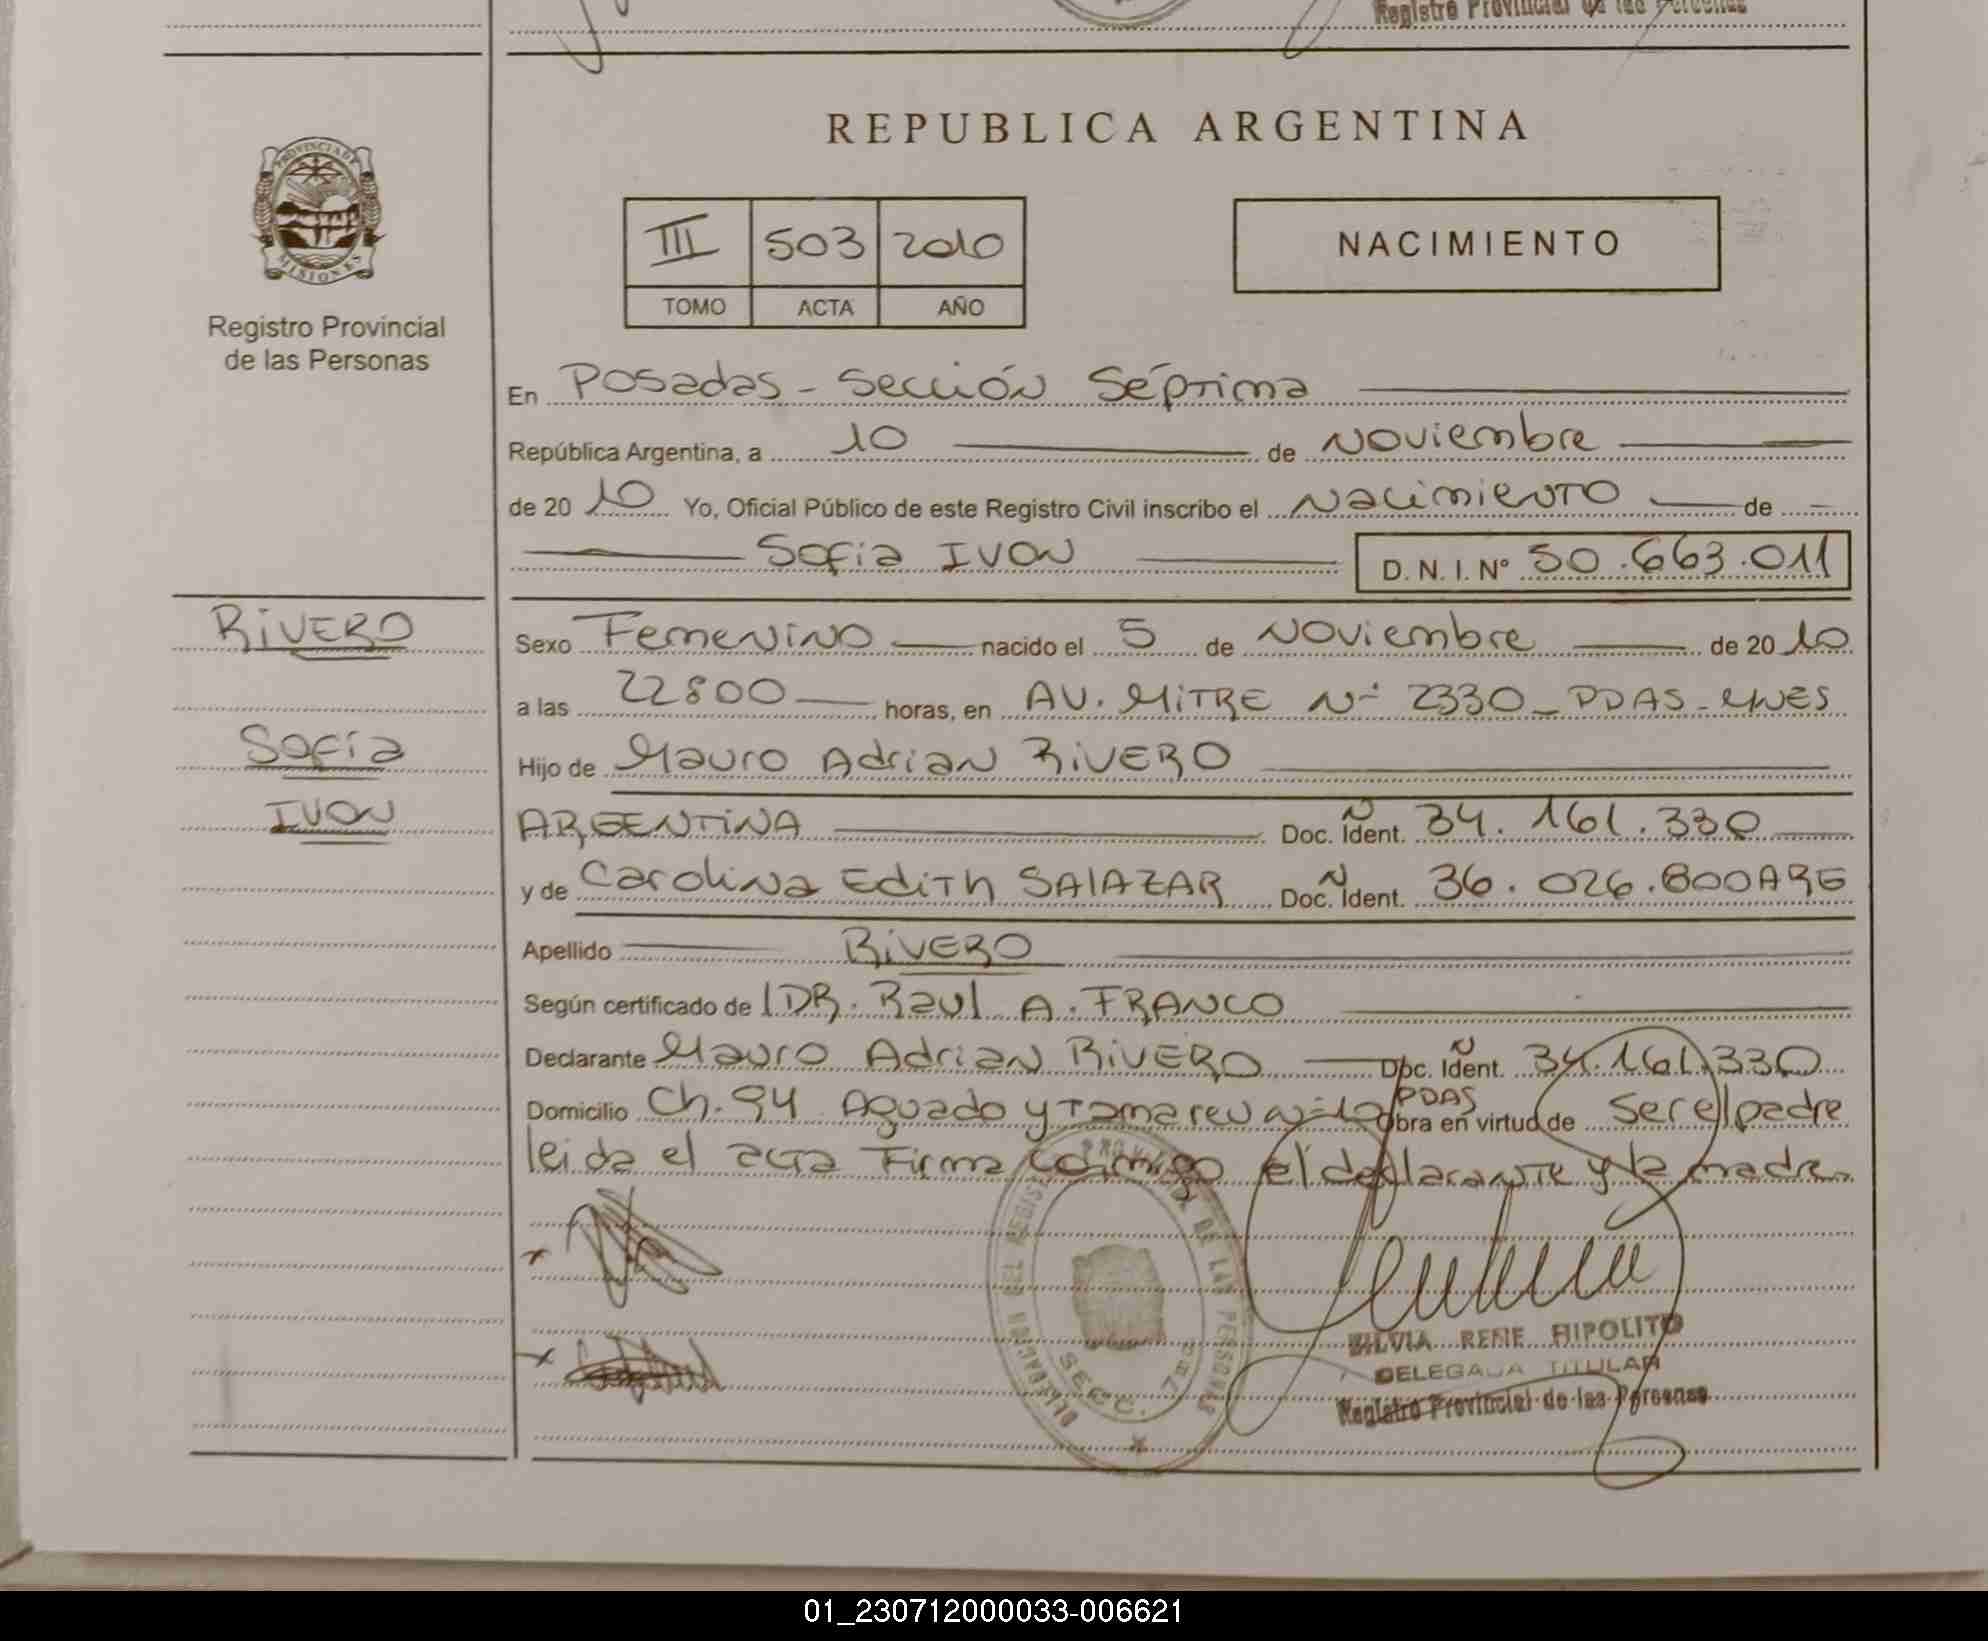 Registro Provincial de las Personas
REPUBLICA ARGENTINA
PROVINCIA DE
MISIONES
Registro Provincial
de las Personas
III 503 2010
TOMO ACTA AÑO
NACIMIENTO
En Posadas - Sección Séptima
República Argentina, a 10 de Noviembre
de 20 10 Yo, Oficial Público de este Registro Civil inscribo el Nacimiento de
Sofia IVON D.N.I. Nº 50.663.011
RIVERO
Sofía
IVON
Sexo Femenino nacido el 5 de Noviembre de 20 10
a las 22:00 horas, en AV. MITRE Nº 2330 - PDAS - MNES
Hijo de Mauro Adrian RIVERO
ARGENTINA Doc. Ident. 34.161.330
y de Carolina Edith SALAZAR Doc. Ident. 36.026.800 ARG
Apellido RIVERO
Según certificado de DR. Raul A. FRANCO
Declarante Mauro Adrian RIVERO Doc. Ident. 34.161.330
Domicilio Ch. 94 Aguado y Tamareu PDAS Obra en virtud de ser el padre
leida el acta Firma conmigo el declarante y la madre.
DELEGACION DEL REGISTRO PROVINCIAL DE LAS PERSONAS
SECC. 7ma
SILVIA RENE HIPOLITO
DELEGADA TITULAR
Registro Provincial de las Personas
01_230712000033-006621